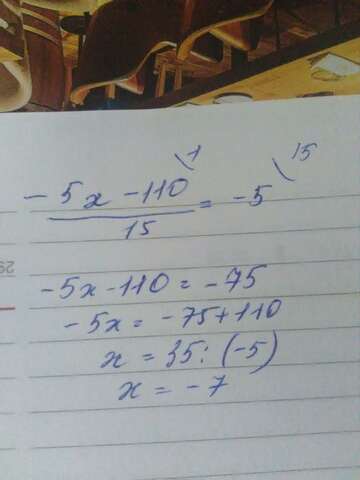 1 15
- 5x - 110 = -5
15
-5x - 110 = -75
-5x = -75 + 110
x = 35 : (-5)
x = -7
29